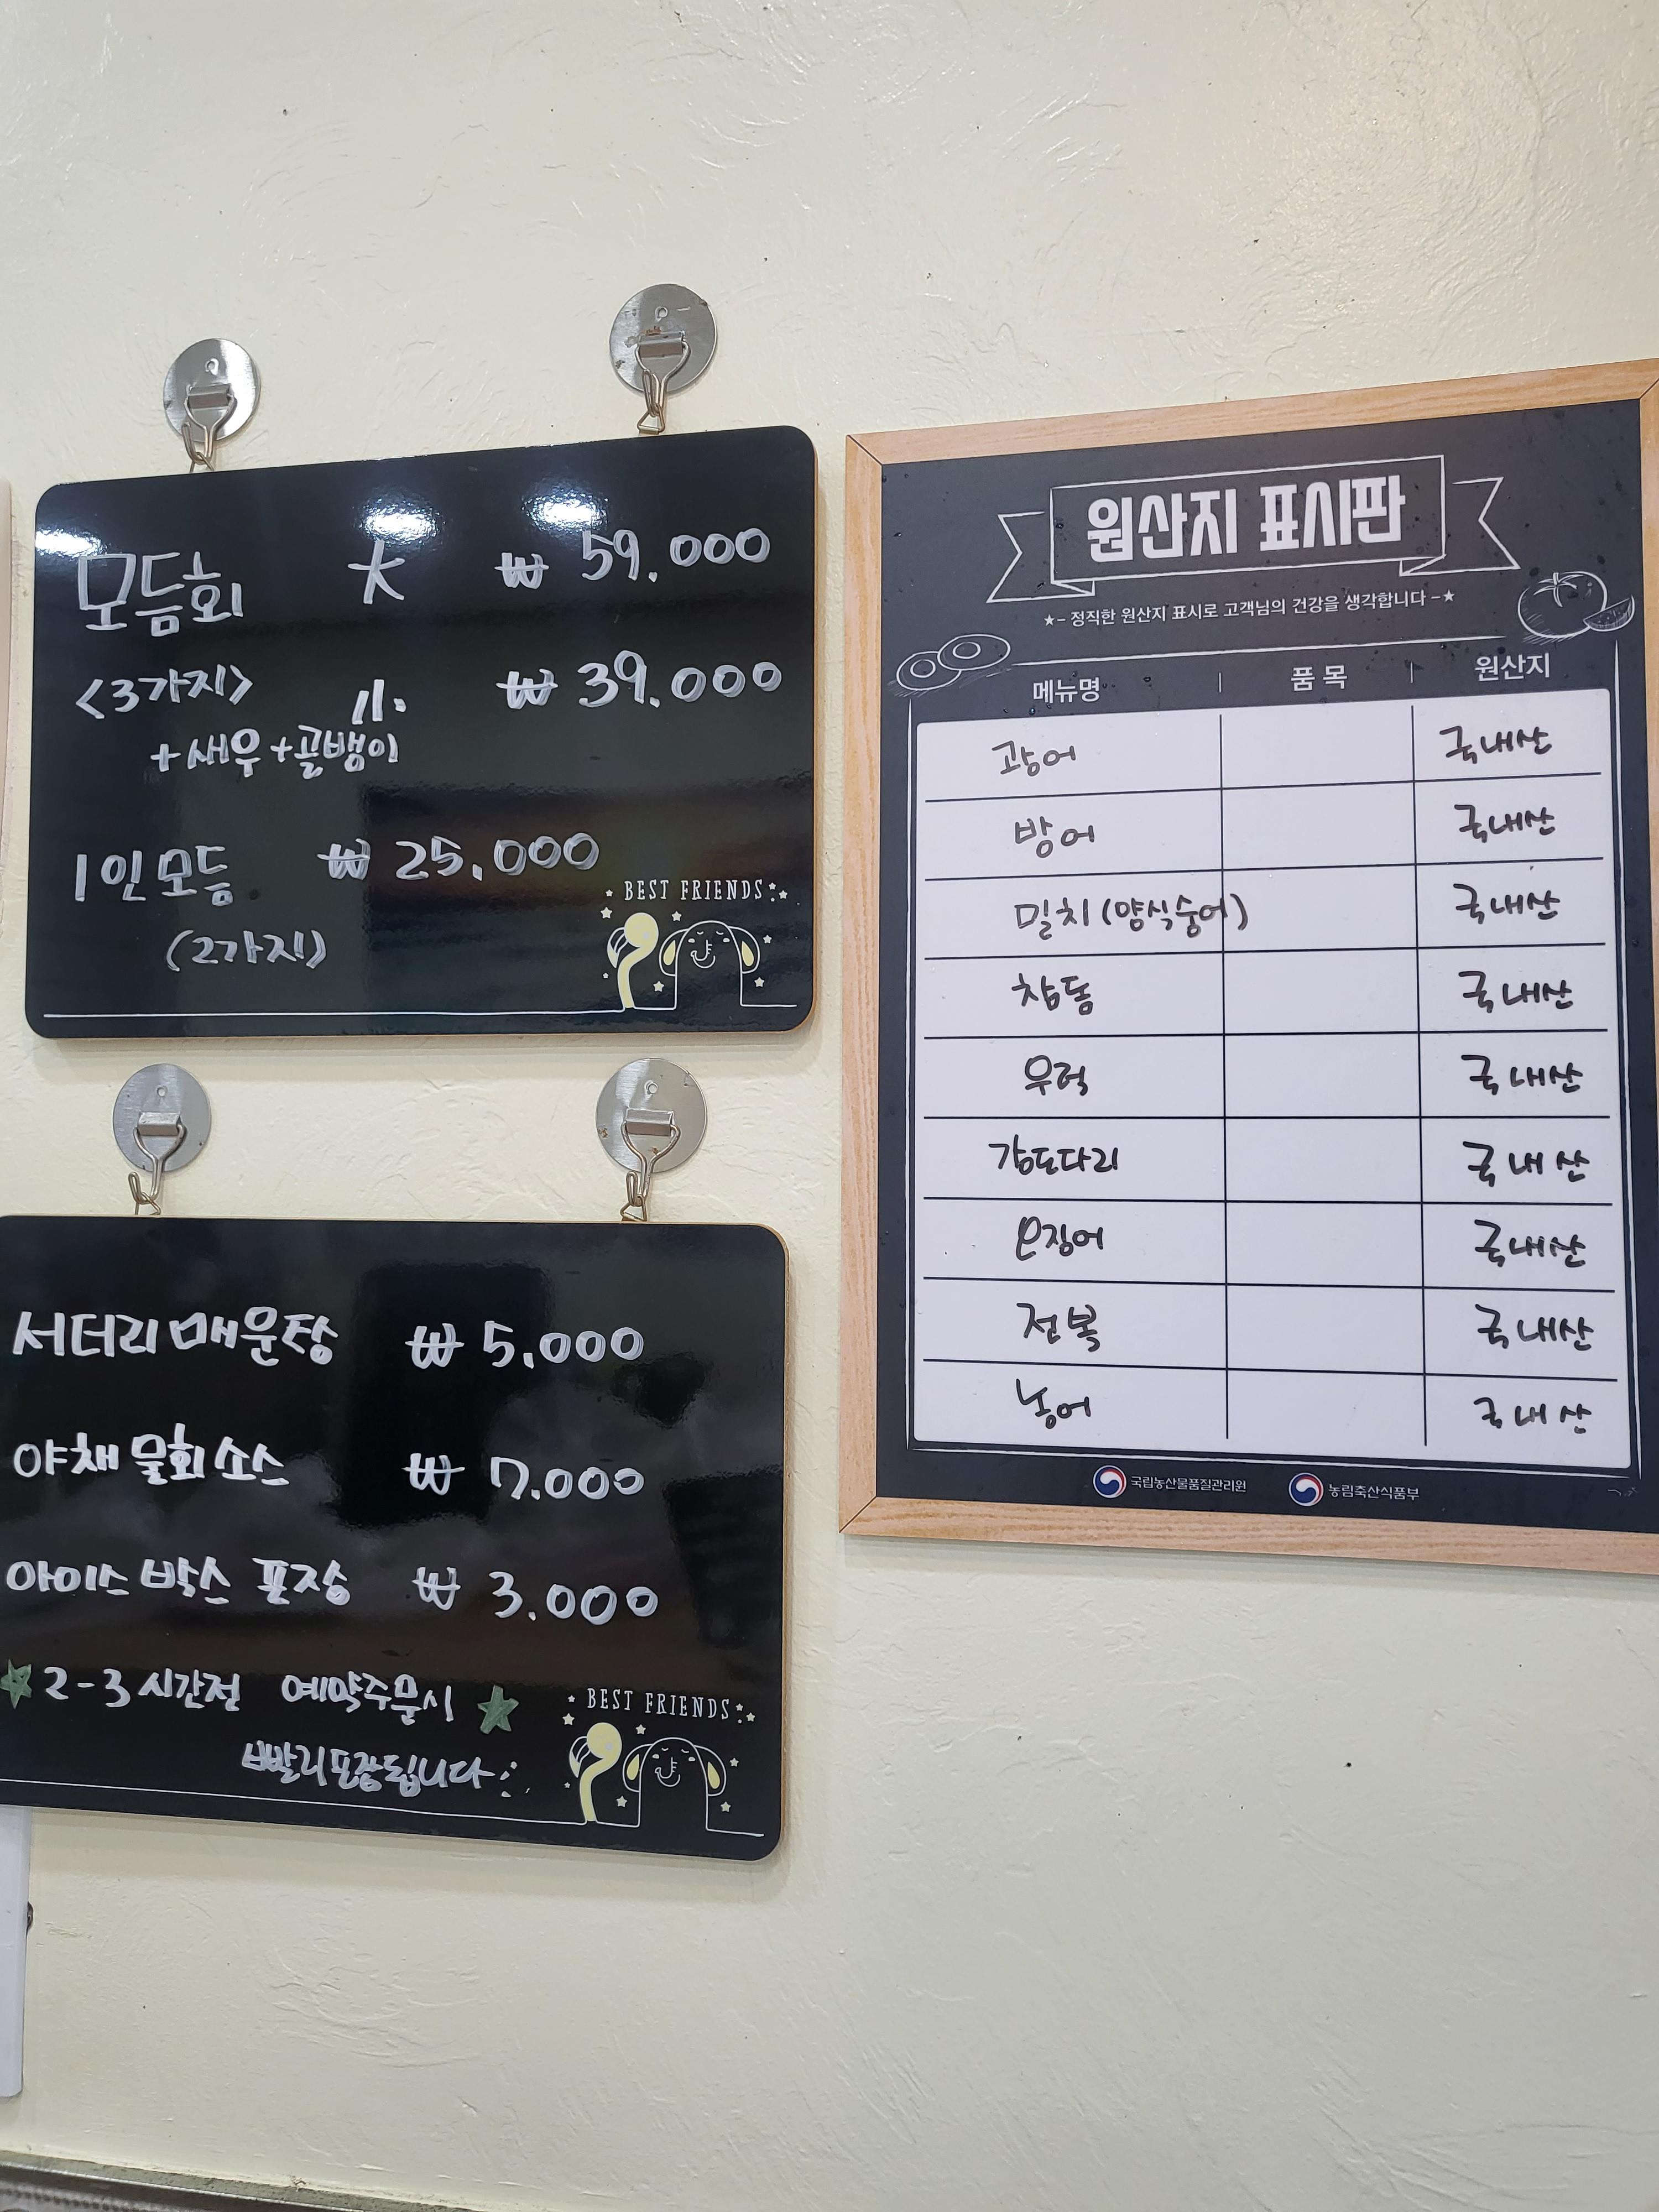 모듬회 大 ₩ 59.000
<3가지> 小 ₩ 39.000
+새우+골뱅이
1인모듬 ₩ 25.000
(2가지)
BEST FRIENDS
서더리매운탕 ₩ 5.000
야채 물회소스 ₩ 7.000
아이스박스 포장 ₩ 3.000
2-3시간전 예약주문시
빨리포장됩니다
BEST FRIENDS
원산지 표시판
★- 정직한 원산지 표시로 고객님의 건강을 생각합니다 -★
메뉴명 | 품목 | 원산지
광어 국내산
방어 국내산
밀치(양식숭어) 국내산
참돔 국내산
우럭 국내산
강도다리 국내산
오징어 국내산
전복 국내산
농어 국내산
국립농산물품질관리원 농림축산식품부